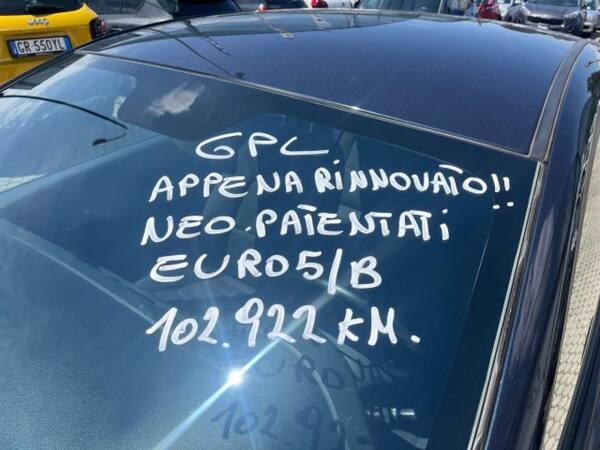 Jeep
GR 550YL
GPL
APPENA RINNOVATO!!
NEO.PATENTATI
EURO5/B
102.922 KM.